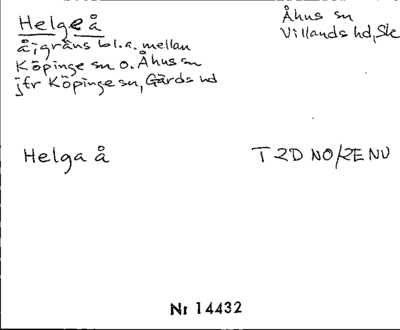 Helge å
å; gräns bl.a. mellan
Köpinge sn o. Åhus sn
jfr Köpinge sn, Gärds hd
Åhus sn
Villands hd, Sk
Helga å
T 2D NO/2E NV
Nr 14432